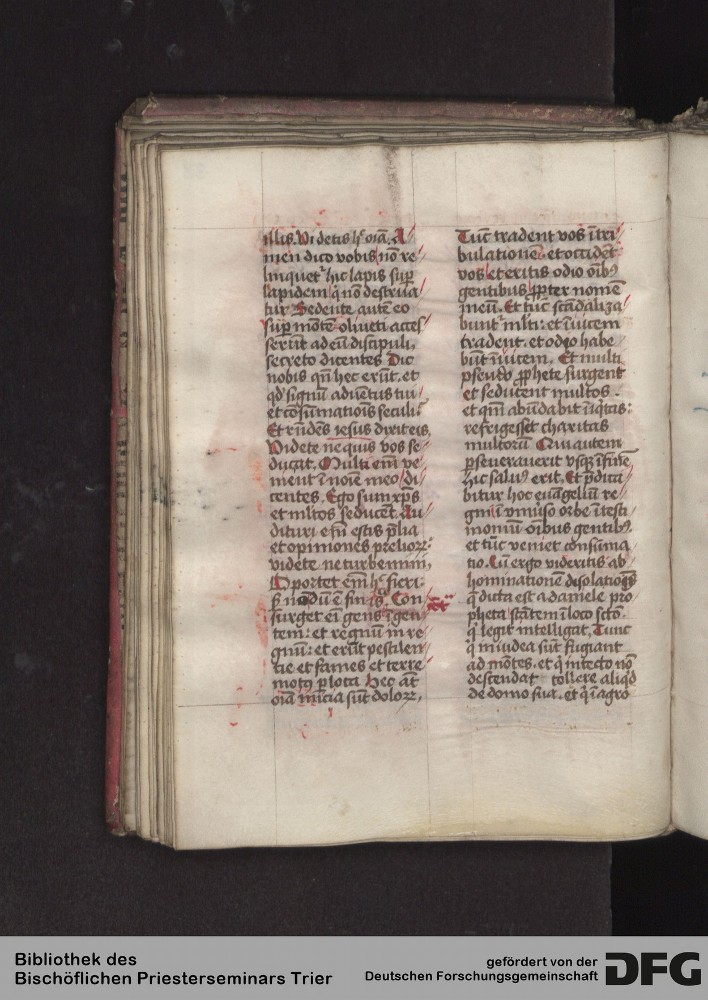 illis. Videtis h̄ oīa. A
men dico vobis nō re
linquet᷑ hic lapis sup̄
lapidem q̇ nō destrua
tur Sedente autē eo
sup̄ mōtē oliueti acces
serūt ad eū discipuli,
secreto dicentes Dic
nobis qn̄ hec erūt. et
qd' signū aduētus tui
et cōsūmatiois seculi
Et rn̄dēs iesus dixit eis.
Videte ne quis vos se
ducat. Multi em̄ ve
nient ī noīe meo di
centes. Ego sum xp̄s
et ml̄tos seducēt. Au
dituri em̄ estis p̄lia
et opiniones prelioꝝ.
videte ne turbemini,
Oportet em̄ h̄ fieri.
ꝫ nōdū ē finis. Con
surget em̄ gens ī gen
tem: et regnū in re
gnū: et erūt pestilen
tie et fames et terre
motꝰ p̲ loca Hec aūt
oīa inicia sūt doloꝝ,
Tūc tradent vos ī tri
bulationē. et occidēt
vos et eritis odio oīb⁹
gentibus ꝓpter nomē
meū. Et tūc scādaliza
bunt᷑ mlti: et īuicem
tradent. et odio habe
būt īuicem. Et multi
pseudo ꝓphete surgent
et seducent multos.
et qm̄ abūdabit īiq̇tas:
refrigescet charitas
multorū Qui autem
ꝑseuerauerit vsqꝫ ī finē
hic saluꝰ erit. Et p̄dica
bitur hoc euāgeliū re
gni ī vniuso orbe ī testi
moniū oībus gentibꝰ.
et tūc veniet cōsūma
tio. Cū ergo videritis ab
hominationē disolatiōis
q̄ dicta est a daniele pro
pheta stātem ī loco sc̄to.
q̇ legit intelligat. Tunc
q̇ in iudea sūt fugiant
ad mōtes. et q̇ in tecto nō
descendat tollere aliqd
de domo sua. et q̇ ī agro
Bibliothek des
Bischöflichen Priesterseminars Trier
gefördert von der
Deutschen Forschungsgemeinschaft
DFG